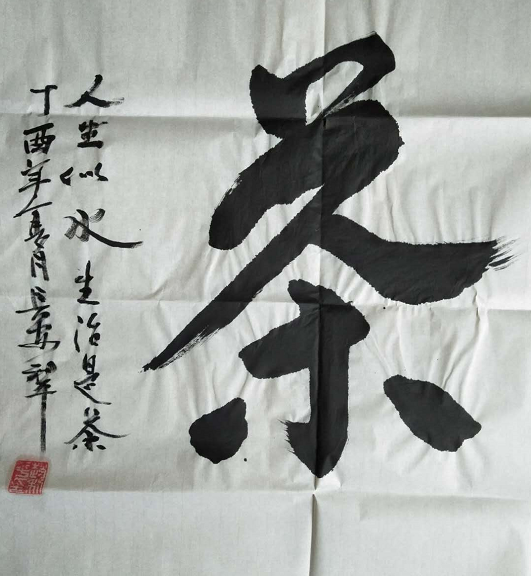 茶
人生似水生活是茶
丁酉年夏月